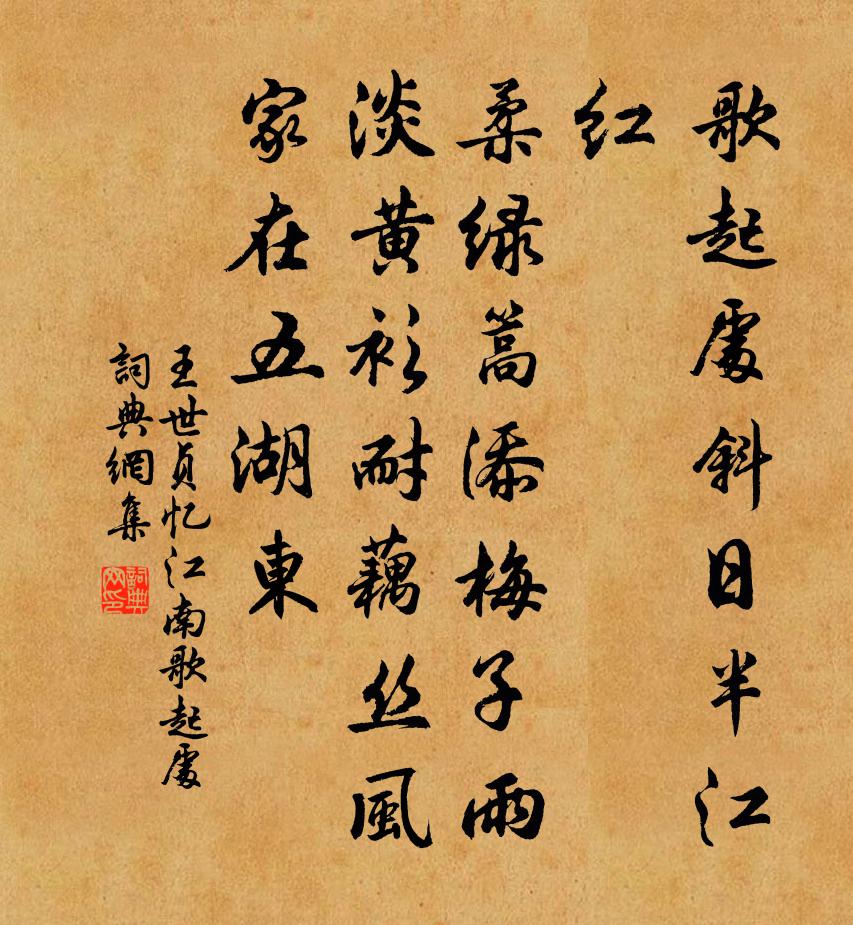 歌起處斜日半江
红
柔绿篙添梅子雨
淡黄衫耐藕丝風
家在五湖東
王世貞忆江南歌起處
詞典網集
詞典网印